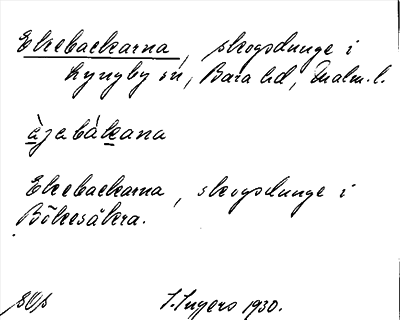 Ekebackarna, skogsdunge i
Lyngby sn, Bara hd, Malm. l.
àjabàkana
Ekebackarna, skogsdunge i
Bökesåkra.
I. Ingers 1930.